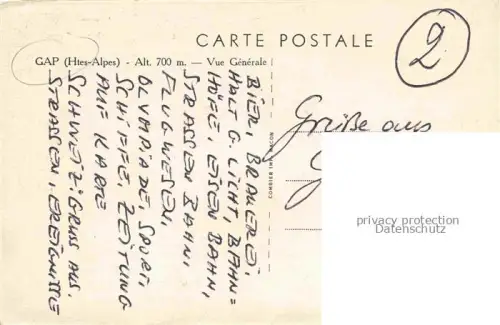 CARTE POSTALE
2
GAP (Htes-Alpes) - Alt. 700 m. — Vue Générale
BIER, BRAUEREI,
HALT G. LICHT, BAHN=
HÖFE, EISEN BAHN,
STRASSEN BAHN,
FLUGWESEN,
OLYMPIADE, SPORT,
SCHIFFE, ZEITUNG
AUF KARTE
SCHWEIZ: GRUSS AUS.
STRASSEN, EREIGNISSE
COMBIER IMP. MACON
Grüße aus
G
privacy protection
Kartenplanet